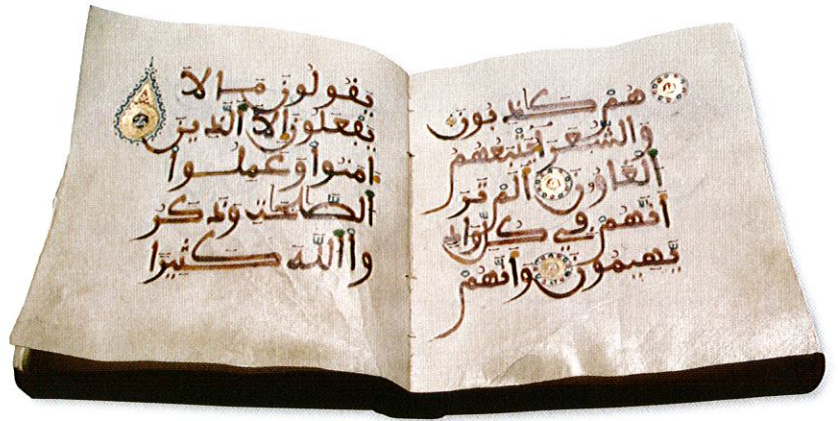 هُمْ كَٰذِبُونَ
وَالشُّعَرَاءُ يَتْبَعُهُمُ
الْغَاوُۥنَ أَلَمْ تَرَ
أَنَّهُمْ فِي كُلِّ وَادٍ
يَّهِيمُونَ وَأَنَّهُمْ
يَقُولُونَ مَا لَا
يَفْعَلُونَ إِلَّا الَّذِينَ
ءَامَنُوا وَعَمِلُوا
الصَّٰلِحَٰتِ وَذَكَرُ
وا اللَّهَ كَثِيرًا